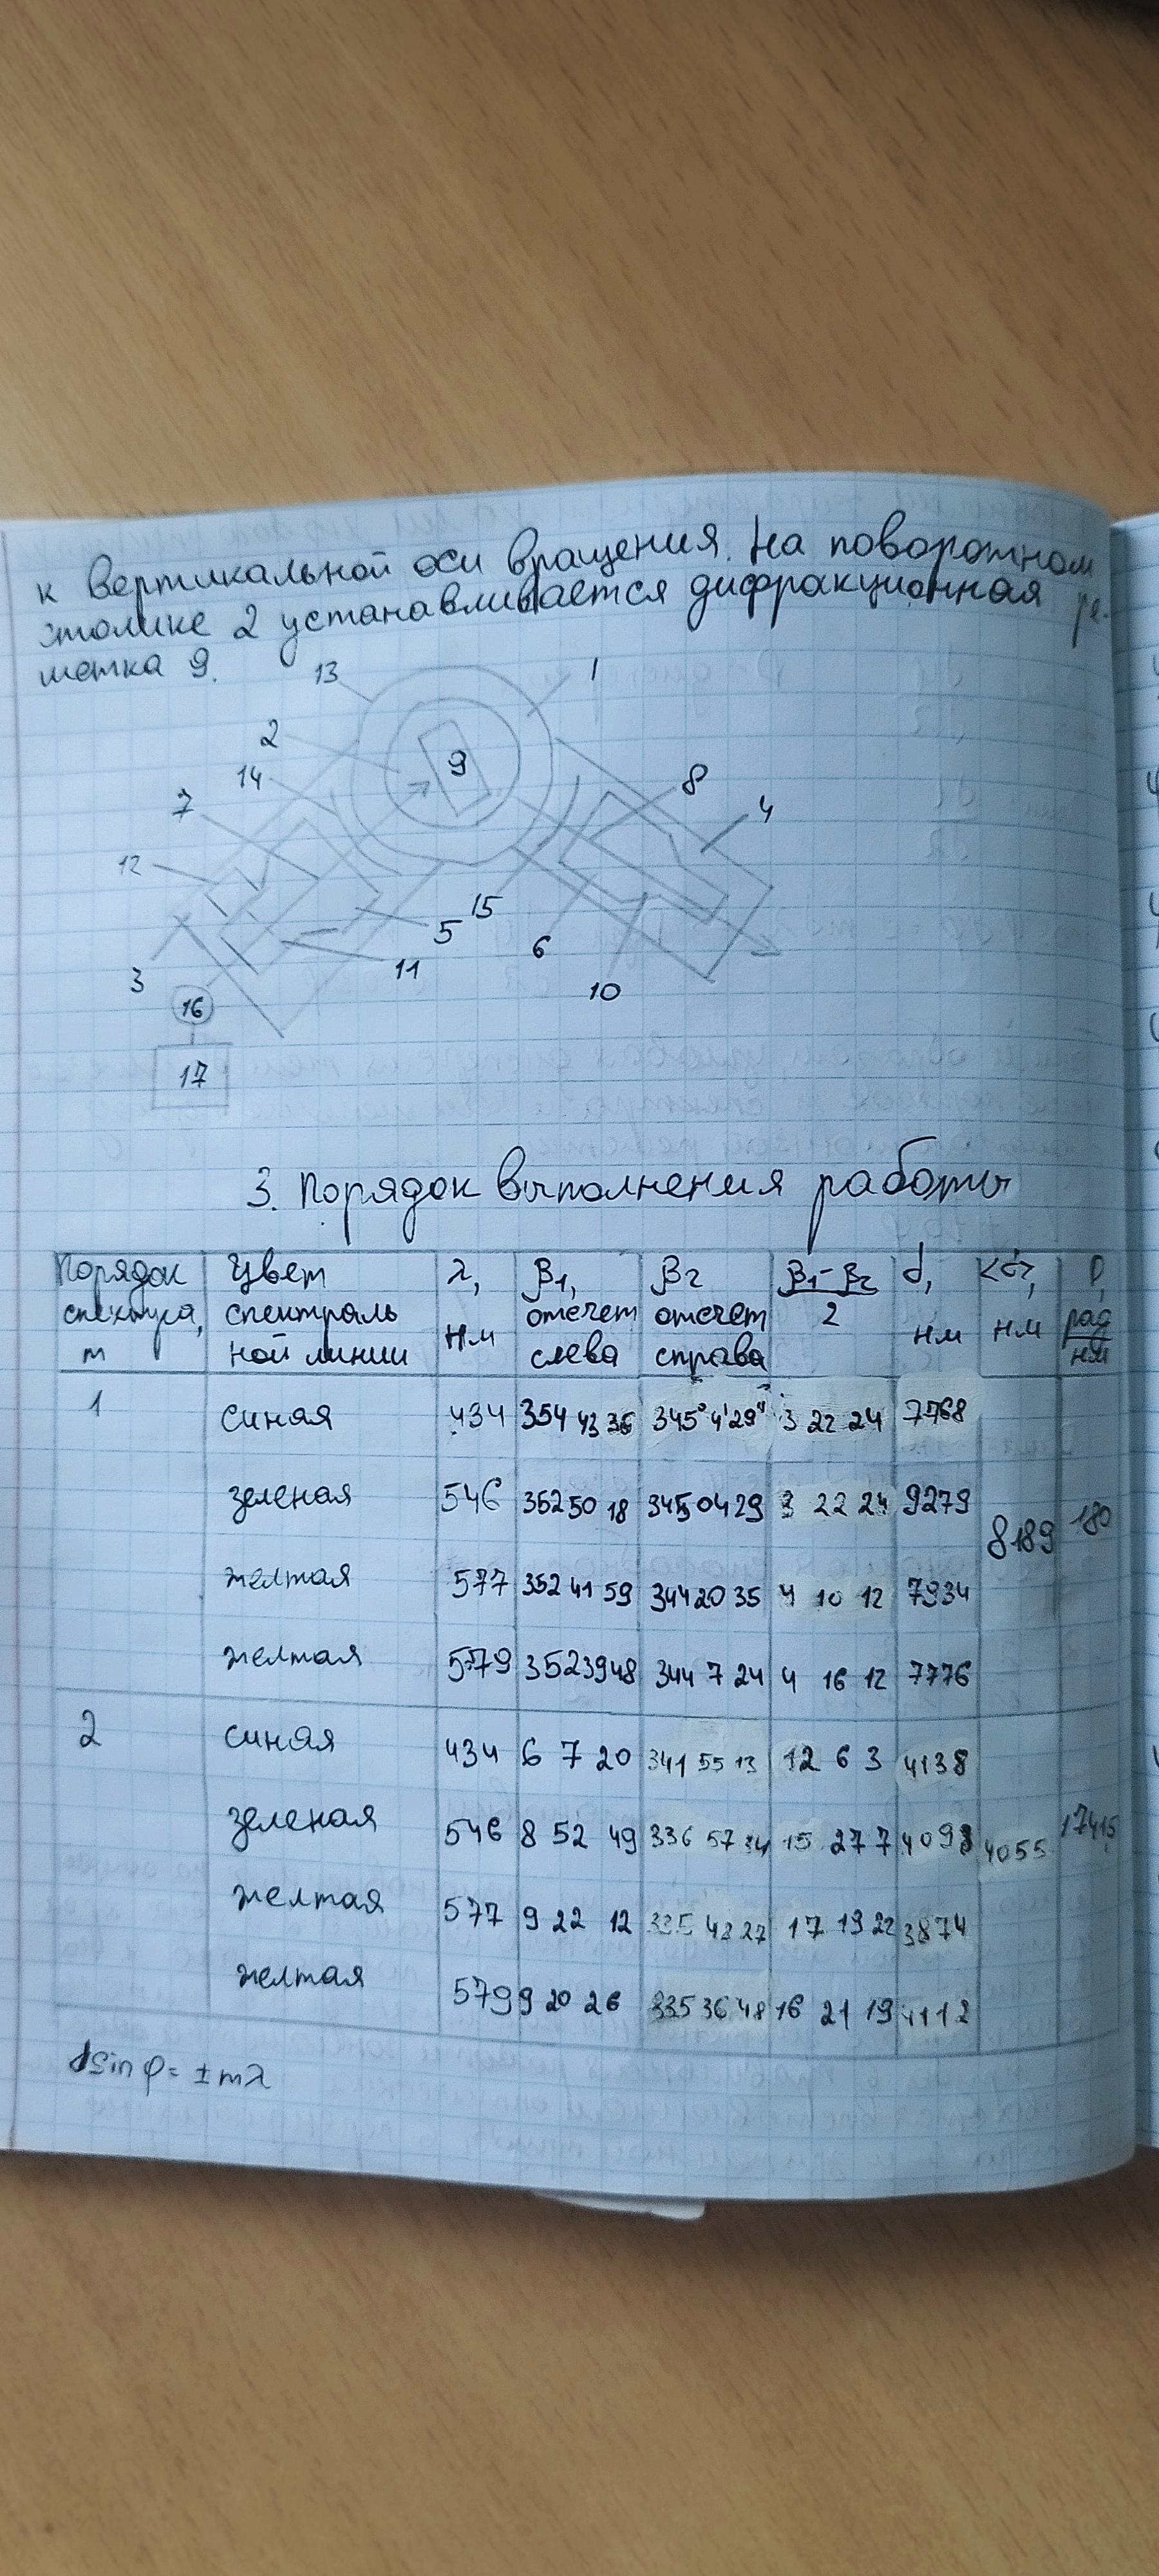 к вертикальной оси вращения. На поворотном
столике 2 устанавливается дифракционная ре-
шетка 9.
13
1
2
9
14
8
7
4
12
15
5
6
11
3
10
16
17
3. Порядок выполнения работы
Порядок спектра, m | Цвет спектраль ной линии | λ, нм | β1, отсчет слева | β2 отсчет справа | β1-β2 / 2 | d, нм | <d>, нм | D, рад/нм
1 | синяя | 434 | 354 43 36 | 345° 4' 29" | 3 22 24 | 7768
зеленая | 546 | 352 50 18 | 345 04 29 | 3 22 24 | 9279 | 8189 | 180
желтая | 577 | 352 41 59 | 344 20 35 | 4 10 12 | 7934
желтая | 579 | 352 39 48 | 344 7 24 | 4 16 12 | 7776
2 | синяя | 434 | 6 7 20 | 341 55 13 | 12 6 3 | 4138
зеленая | 546 | 8 52 49 | 336 57 34 | 15 27 7 | 4098 | 4055 | 17415
желтая | 577 | 9 22 12 | 335 48 27 | 17 19 22 | 3874
желтая | 579 | 9 20 26 | 335 36 48 | 16 21 19 | 4112
d sin φ = ± mλ